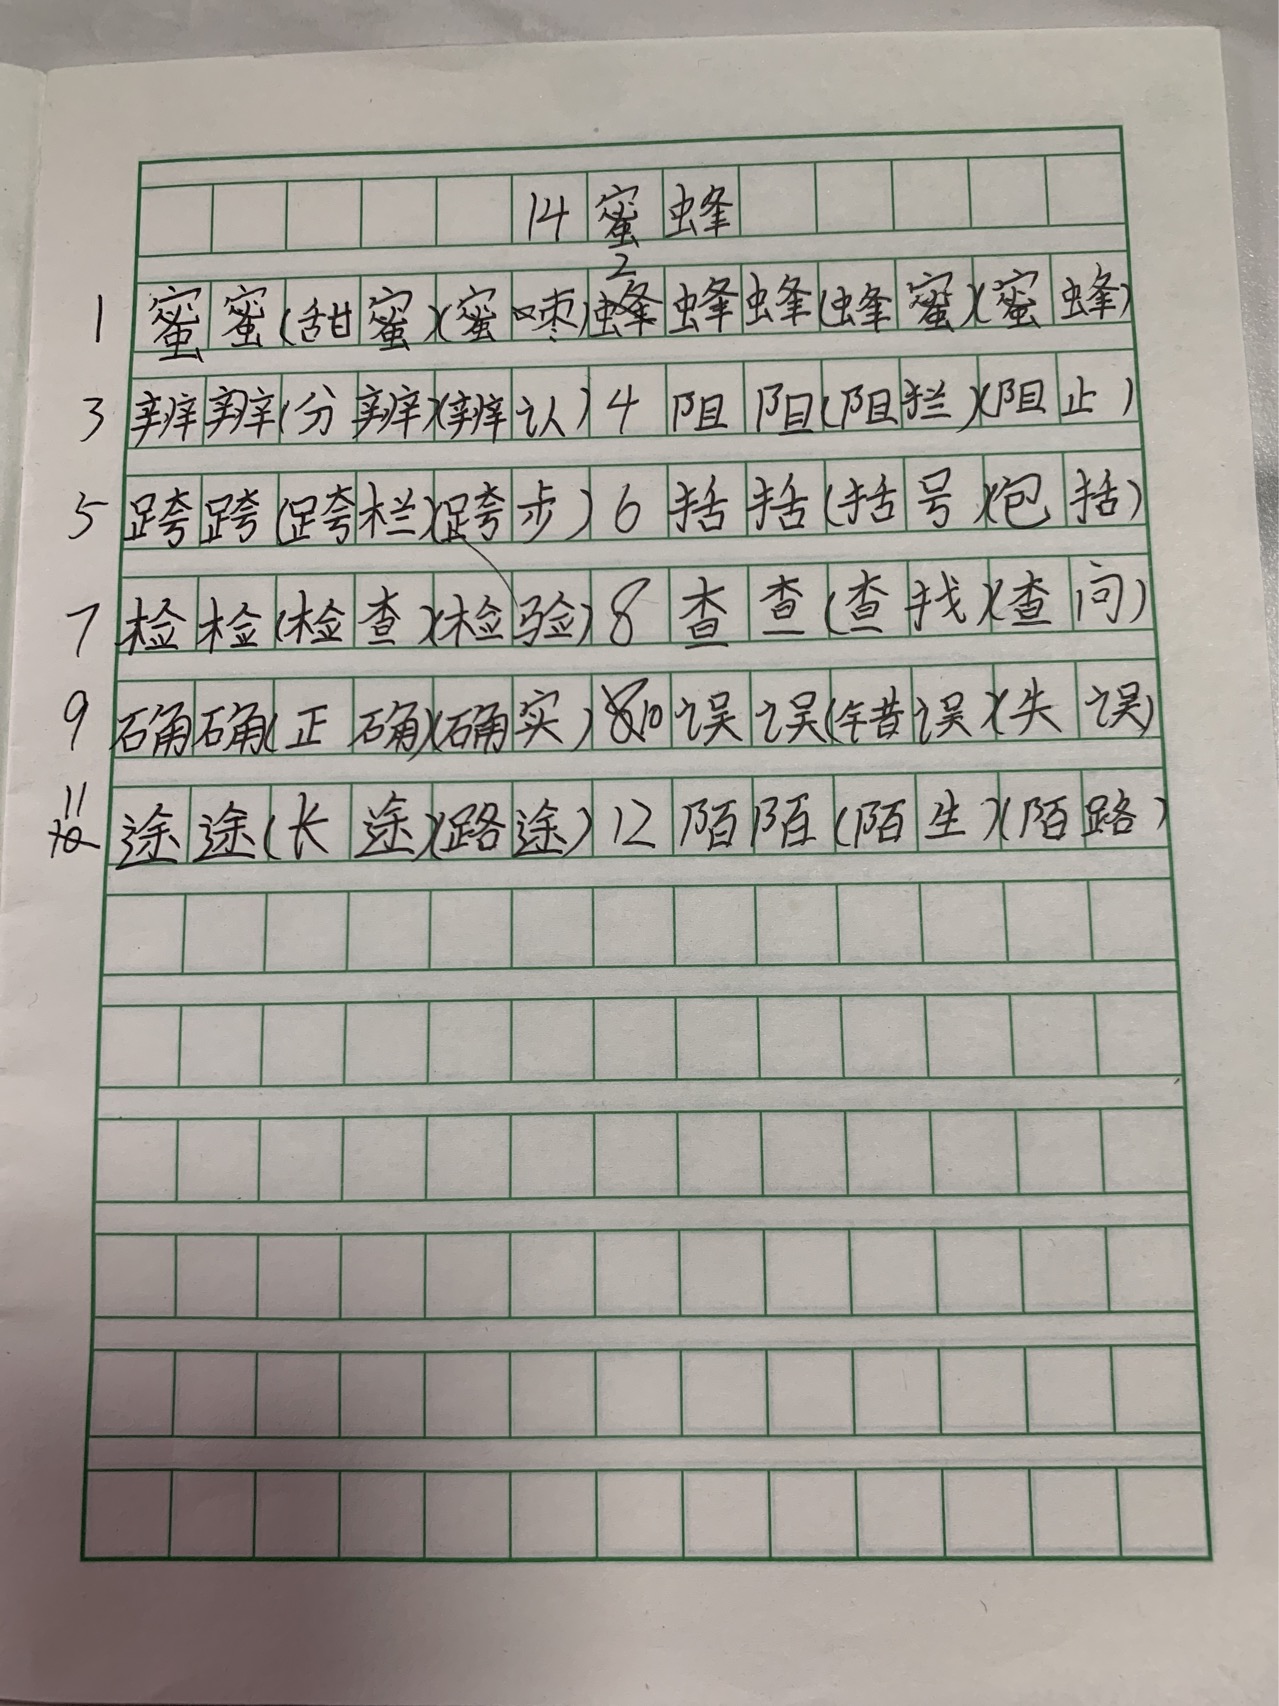 14 蜜蜂
2
1 蜜蜜(甜蜜)(蜜枣)蜂蜂蜂(蜂蜜)(蜜蜂)
3 辨辨(分辨)(辨认)4阻阻(阻拦)(阻止)
5 跨跨(跨栏)(跨步)6括括(括号)(包括)
7 检检(检查)(检验)8查查(查找)(查问)
9 确确(正确)(确实)10误误(错误)(失误)
11 途途(长途)(路途)12陌陌(陌生)(陌路)